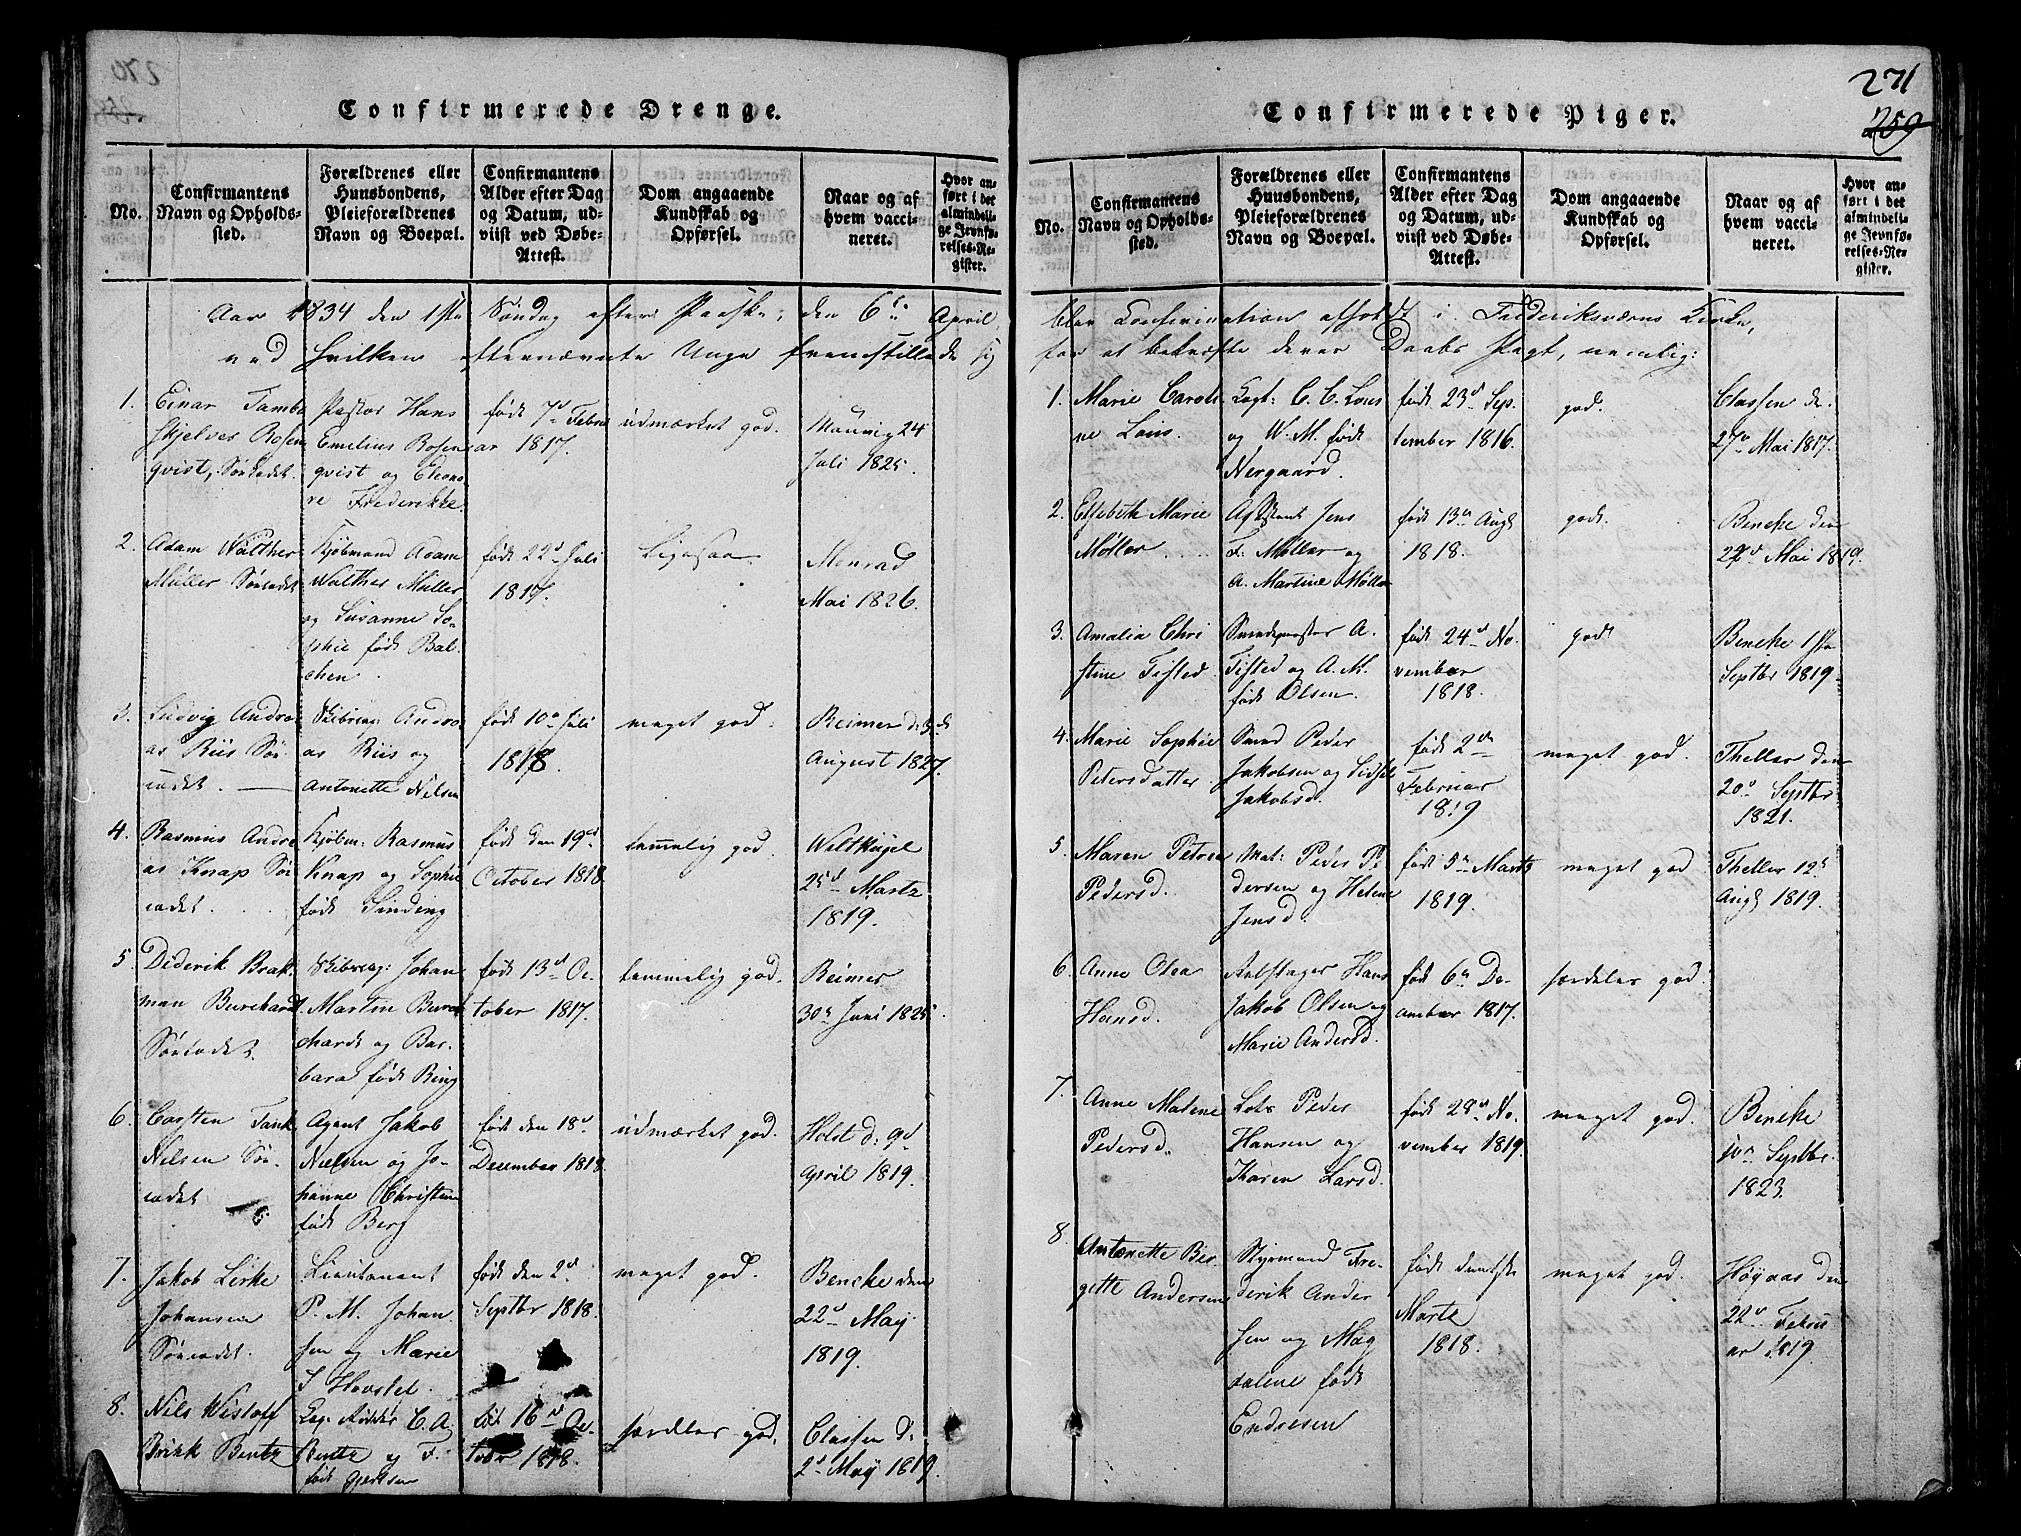 Confirmerede Drenge.
No.
Confirmantens
Navn og Opholds-
sted.
Forældrenes eller
Huusbondens,
Pleieforældrenes
Navn og Boepæl.
Confirmantens
Alder efter Dag
og Datum, ud-
viist ved Døbe-
Attest.
Dom angaaende
Kundskab og
Opførsel.
Naar og af
hvem vacci-
neret.
Hvor an-
ført i det
almindeli-
ge Jevnfø-
relses-Re-
gister.
Aar 1834 den 1ste Søndag efter Paaske, den 6te April,
ved hvilken efternævnte Unge fremstillede sig
1.
Einar Tamba
skjelver Rosen
qvist, Søcadet
Pastor Hans
Emilius Rosen
qvist og Eleono-
re Frederikke
født 7d Febru
ar 1817.
udmærket god.
24
Juli 1825.
2.
Adam Walther
Müller Søcadet
Kjøbmand Adam
Walther Müller
og Susanne So-
phie født Bal-
chen.
født 22d Juli
1817.
Ligesaa.
Monrad
Mai 1826.
3.
Ludvig Andre
as Riis Sø
cadet.
Andre
as Riis og
Antonette Nilsen
født 10d Juli
1818.
meget god.
Reimer d: 3d
August 1827.
4.
Rasmus Andre
as Knap Sø
cadet.
Kjøbm: Rasmus
Knap og Sophie
født Sinding
født den 19d
October 1818
temmelig god.
25d Martz
1819.
5.
Diderik Brak
man Burchardt
Søcadet.
Johan
Martin Burch
hardt og Bar-
bara født Ring
født 13d Oc-
tober 1817.
temmelig god.
Reimer
30d Juni 1825.
6.
Carsten Tank
Nilsen Sø-
cadet
Agent Jakob
Nielsen og Jo-
hanne Christine
født Berg
født den 18d
December 1818
udmærket god.
Holst d: 9d
April 1819.
7.
Jakob Lerke
Johansen
Søcadet.
Lieutenant
P. M. Johan
sen og Marie
født den 2d
Septbr 1818.
meget god.
Bencke den
22d May
1819.
8.
Nils Wistoff
Brink Bentz
C. A.
Bentz og F.
født Gjertsen
født 16d Oc-
tober 1818.
særdeles god.
Classen d.
2d May 1819.
Confirmerede Piger.
271
259
No.
Confirmantens
Navn og Opholds-
sted.
Forældrenes eller
Huusbondens,
Pleieforældrenes
Navn og Boepæl.
Confirmantens
Alder efter Dag
og Datum, ud-
viist ved Døbe-
Attest.
Dom angaaende
Kundskab og
Opførsel.
Naar og af
hvem vacci-
neret.
Hvor an-
ført i det
almindeli-
ge Jevnfø-
relses-Re-
gister.
blev Confirmation afholdt i Frederiksværns Kirke,
for at bekræfte deres Daabs Pagt, nemlig:
1.
Marie Caroli
ne Lous.
Capt: C. C. Lous
og W. M. født
Nergaard.
født 23d Sep-
tember 1816.
god.
Classen d.
27d Mai 1817.
2.
Elsebeth Marie
Møller
Assistent Jens
F. Møller og
A. Martine Møller
født 13d Augt
1818.
god.
Bencke den
22d Mai 1819.
3.
Amalia Chri
stine Tisted
A.
Tisted og A. M.
født Olsen.
født 24d No
vember
1818.
god
Bencke 1ste
Septbr 1819.
4.
Marie Sophie
Petersdatter
Smed Peder
Jakobsen og Sidsel
Jakobsd.
født 2den
Februar
1819
meget god.
Theller den
20d Septbr
1821.
5.
Maren Petrea
Pedersd.
Mat: Peder Pe
dersen og Helene
Jensd.
født 5d Martz
1819.
meget god
Theller 12d
Augt 1819.
6.
Anne Olea
Hansd.
Hans
Jakob Olsen og
Marie Andersd.
født 6d De-
cember 1817.
særdeles god.
7.
Anne Malene
Pedersd.
Lots Peder
Hansen og
Karen Larsd.
født 28d No-
vember 1819.
meget god.
Bencke
10d Septbr.
1823.
8.
Antonette Bir-
gitte Andersen
Styrmand Fre-
derik Ander
sen og Mag
dalene født
Endresen
født den
Marts
1818.
meget god.
Høyaas den
22d Febru
ar 1819.